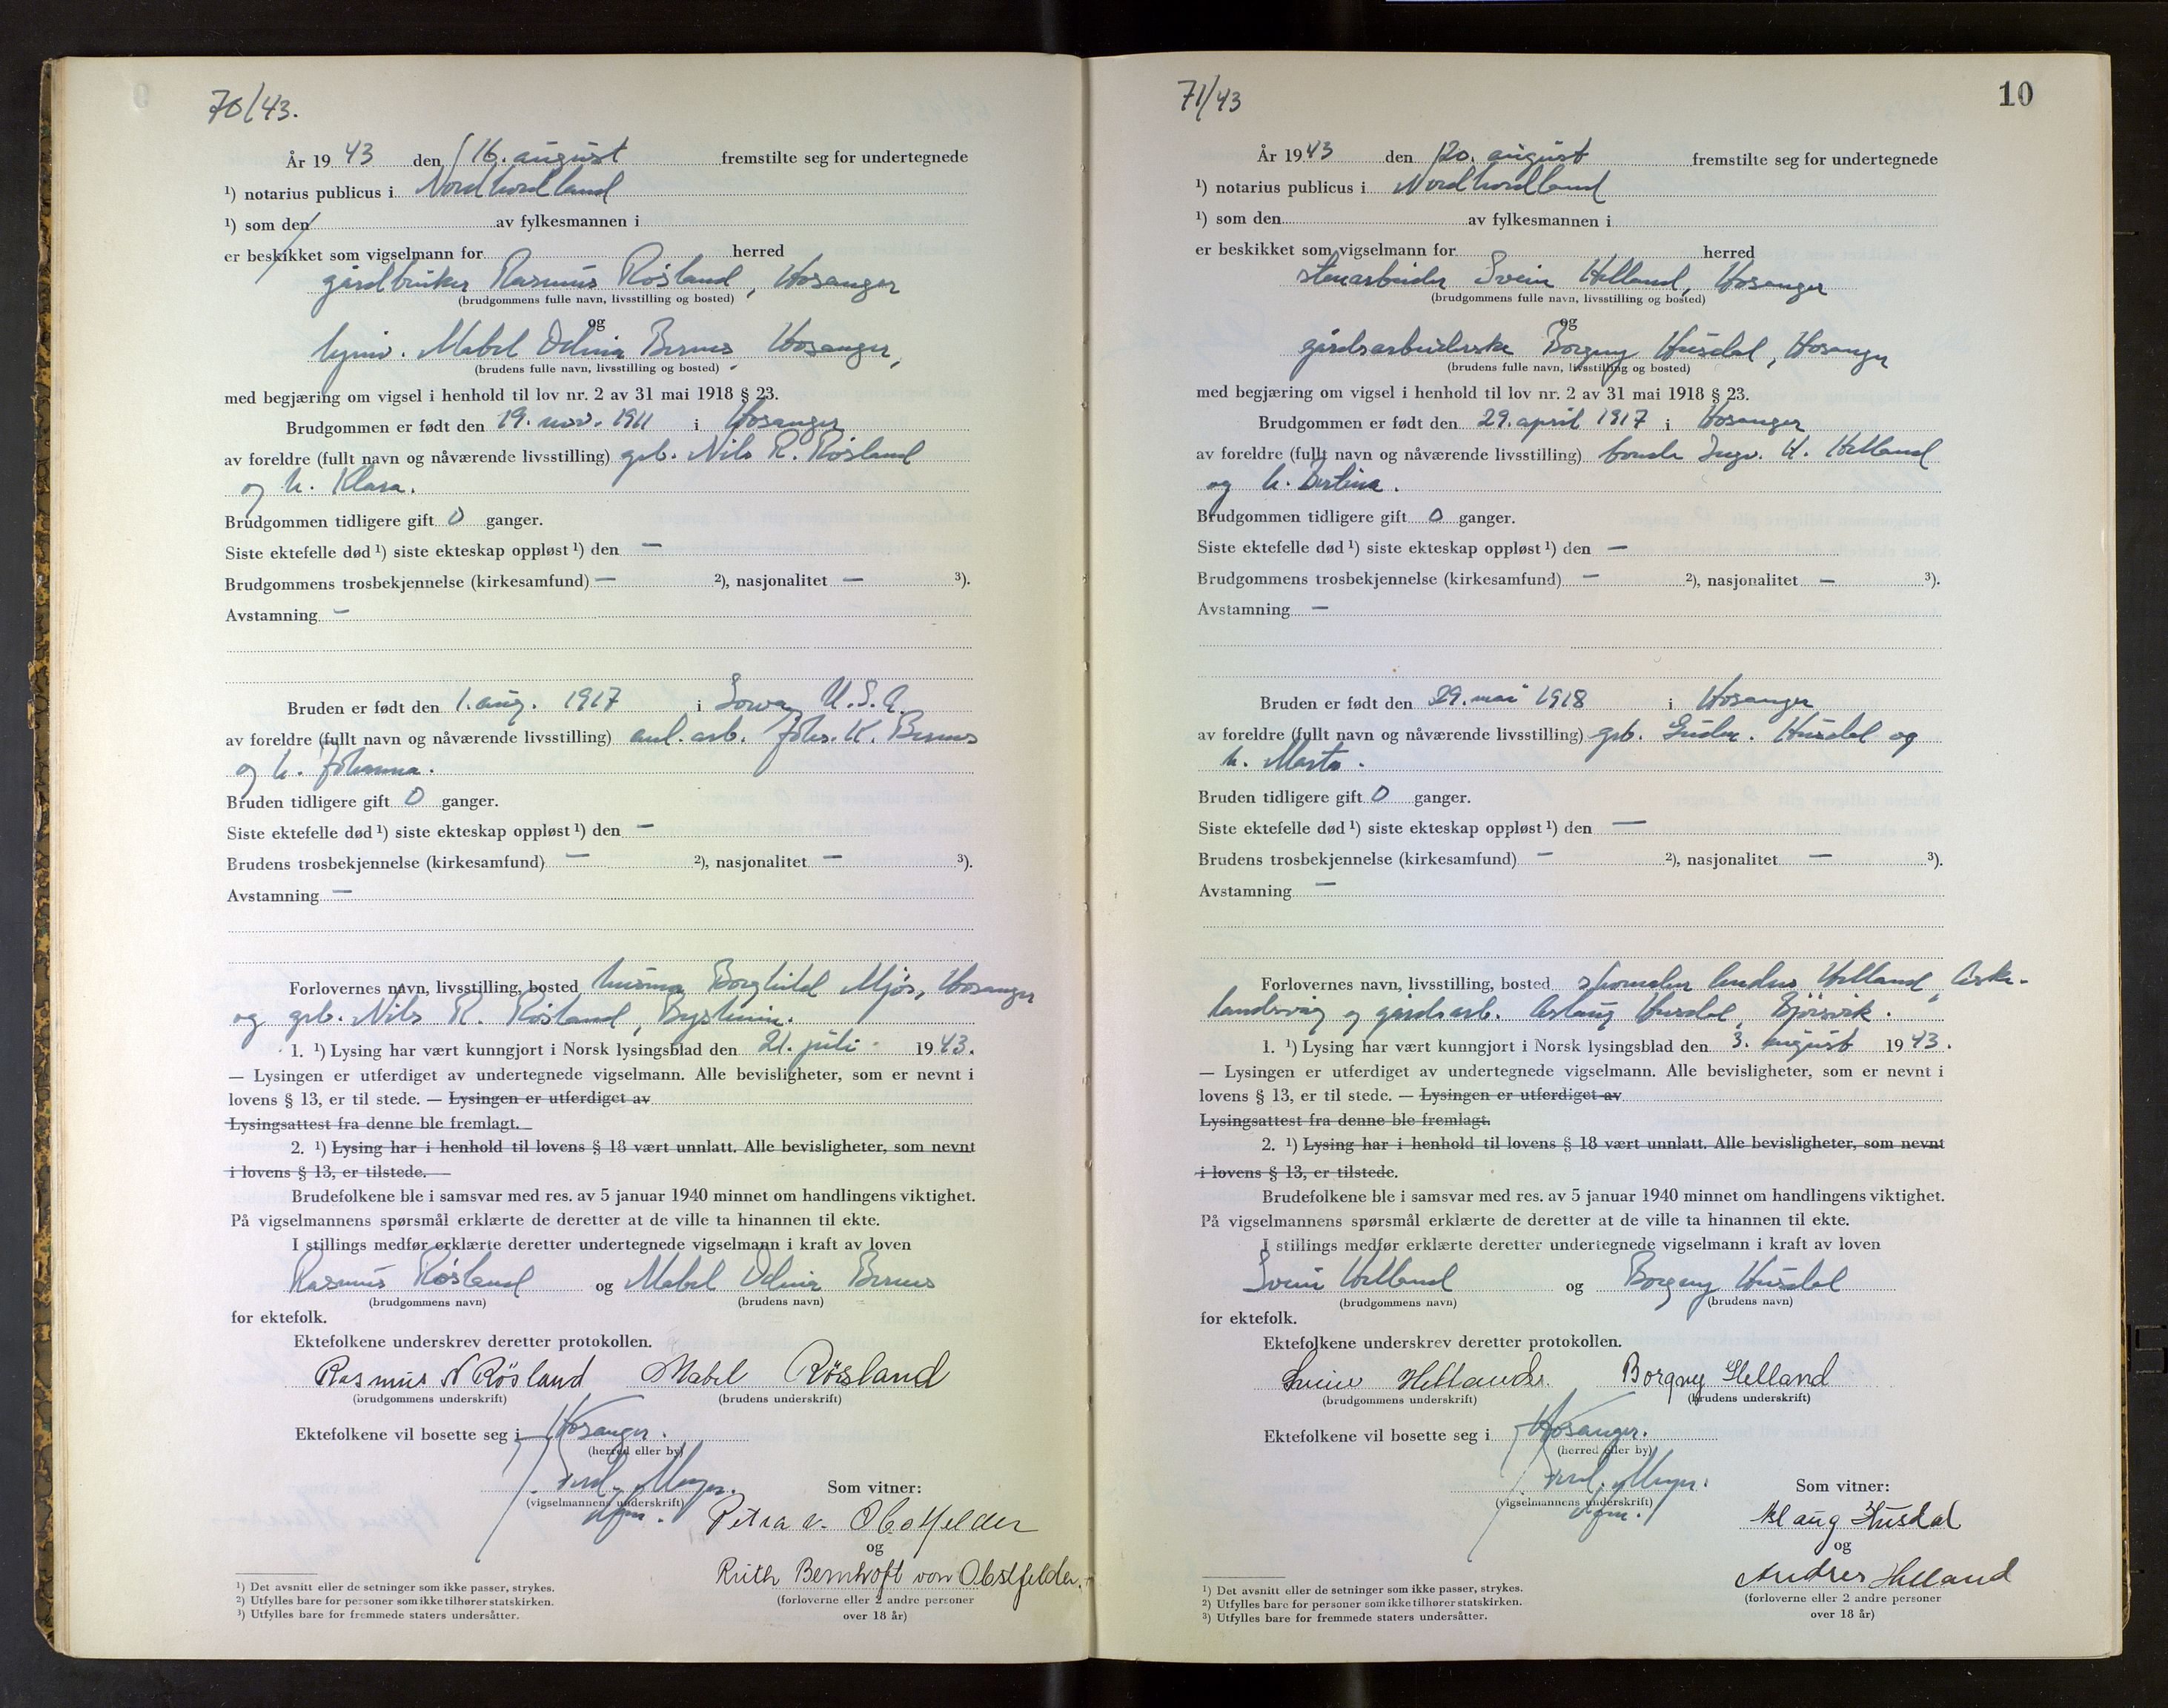 70/43.
År 1943 den 16. august fremstilte seg for undertegnede
¹) notarius publicus i Nordhordland
¹) som den av fylkesmannen i
er beskikket som vigselmann for herred
gårdbruker Rasmus Røsland, Hosanger
(brudgommens fulle navn, livsstilling og bosted)
og
Mabel Odina Bernes, Hosanger,
(brudens fulle navn, livsstilling og bosted)
med begjæring om vigsel i henhold til lov nr. 2 av 31 mai 1918 § 23.
Brudgommen er født den 19. nov. 1911 i Hosanger
av foreldre (fullt navn og nåværende livsstilling) grb. Nils R. Røsland
og h. Klara.
Brudgommen tidligere gift 0 ganger.
Siste ektefelle død ¹) siste ekteskap oppløst ¹) den —
Brudgommens trosbekjennelse (kirkesamfund) — ²), nasjonalitet — ³).
Avstamning —
Bruden er født den 1. aug. 1917 i Iowa, U.S.A.
av foreldre (fullt navn og nåværende livsstilling) anl. arb. Johs. K. Bernes
og h. Johanna.
Bruden tidligere gift 0 ganger.
Siste ektefelle død ¹) siste ekteskap oppløst ¹) den —
Brudens trosbekjennelse (kirkesamfund) — ²), nasjonalitet — ³).
Avstamning —
Forlovernes navn, livsstilling, bosted husma Borghild Mjøs, Hosanger
og grb. Nils R. Røsland, Bysheim.
1. ¹) Lysing har vært kunngjort i Norsk lysingsblad den 21. juli 1943.
— Lysingen er utferdiget av undertegnede vigselmann. Alle bevisligheter, som er nevnt i
lovens § 13, er til stede. — Lysingen er utferdiget av
Lysingsattest fra denne ble fremlagt.
2. ¹) Lysing har i henhold til lovens § 18 vært unnlatt. Alle bevisligheter, som nevnt
i lovens § 13, er tilstede.
Brudefolkene ble i samsvar med res. av 5 januar 1940 minnet om handlingens viktighet.
På vigselmannens spørsmål erklærte de deretter at de ville ta hinannen til ekte.
I stillings medfør erklærte deretter undertegnede vigselmann i kraft av loven
Rasmus Røsland og Mabel Odina Bernes
(brudgommens navn) (brudens navn)
for ektefolk.
Ektefolkene underskrev deretter protokollen.
Rasmus N Røsland Mabel Røsland
(brudgommens underskrift) (brudens underskrift)
Ektefolkene vil bosette seg i Hosanger.
(herred eller by)
Meyer.
(vigselmannens underskrift) Som vitner:
dfm. Petra v. Obstfelder
og
Ruth Bernhoft von Obstfelder.
(forloverne eller 2 andre personer
over 18 år)
¹) Det avsnitt eller de setninger som ikke passer, strykes.
²) Utfylles bare for personer som ikke tilhører statskirken.
³) Utfylles bare for fremmede staters undersåtter.
71/43
10
År 1943 den 20. august fremstilte seg for undertegnede
¹) notarius publicus i Nordhordland
¹) som den av fylkesmannen i
er beskikket som vigselmann for herred
stenarbeider Svein Helland, Hosanger
(brudgommens fulle navn, livsstilling og bosted)
og
gårdsarbeiderske Borgny Husdal, Hosanger
(brudens fulle navn, livsstilling og bosted)
med begjæring om vigsel i henhold til lov nr. 2 av 31 mai 1918 § 23.
Brudgommen er født den 29. april 1917 i Hosanger
av foreldre (fullt navn og nåværende livsstilling) bonde Ingv. H. Helland
og h. Bertina.
Brudgommen tidligere gift 0 ganger.
Siste ektefelle død ¹) siste ekteskap oppløst ¹) den —
Brudgommens trosbekjennelse (kirkesamfund) — ²), nasjonalitet — ³).
Avstamning —
Bruden er født den 29. mai 1918 i Hosanger
av foreldre (fullt navn og nåværende livsstilling) grb. Gudm. Husdal og
h. Marta.
Bruden tidligere gift 0 ganger.
Siste ektefelle død ¹) siste ekteskap oppløst ¹) den —
Brudens trosbekjennelse (kirkesamfund) — ²), nasjonalitet — ³).
Avstamning —
Forlovernes navn, livsstilling, bosted skomaker Andres Helland, Aske-
landsvåg og gårdsarb. Aslaug Husdal, Bjørsvik.
1. ¹) Lysing har vært kunngjort i Norsk lysingsblad den 3. august 1943.
— Lysingen er utferdiget av undertegnede vigselmann. Alle bevisligheter, som er nevnt i
lovens § 13, er til stede. — Lysingen er utferdiget av
Lysingsattest fra denne ble fremlagt.
2. ¹) Lysing har i henhold til lovens § 18 vært unnlatt. Alle bevisligheter, som nevnt
i lovens § 13, er tilstede.
Brudefolkene ble i samsvar med res. av 5 januar 1940 minnet om handlingens viktighet.
På vigselmannens spørsmål erklærte de deretter at de ville ta hinannen til ekte.
I stillings medfør erklærte deretter undertegnede vigselmann i kraft av loven
Svein Helland og Borgny Husdal
(brudgommens navn) (brudens navn)
for ektefolk.
Ektefolkene underskrev deretter protokollen.
Svein Helland. Borgny Helland
(brudgommens underskrift) (brudens underskrift)
Ektefolkene vil bosette seg i Hosanger.
(herred eller by)
Meyer.
(vigselmannens underskrift) Som vitner:
dfm. Aslaug Husdal
og
Andres Helland
(forloverne eller 2 andre personer
over 18 år)
¹) Det avsnitt eller de setninger som ikke passer, strykes.
²) Utfylles bare for personer som ikke tilhører statskirken.
³) Utfylles bare for fremmede staters undersåtter.